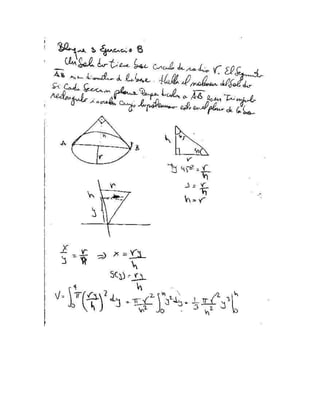 Bloque 3 Ejercicio B
Un Solido tiene base circulo de radio r. El Segmento
AB es un diametro de la base. Halla el volumen del Solido
Si cada Sección plana Perpendicular a AB es un Triangulo
rectangulo isosceles cuya hipotenusa está en el plano de la base
h
A B
r
h 45°
45°
r
Tg 45° = r/h
1 = r/h
h = r
r
h
y
x/y = r/h ⇒ x = ry/h
S(y) = ry/h
V = ∫₀ʰ π (ry/h)² dy = πr²/h² ∫₀ʰ y² dy = 1/3 πr²/h² y³ |₀ʰ